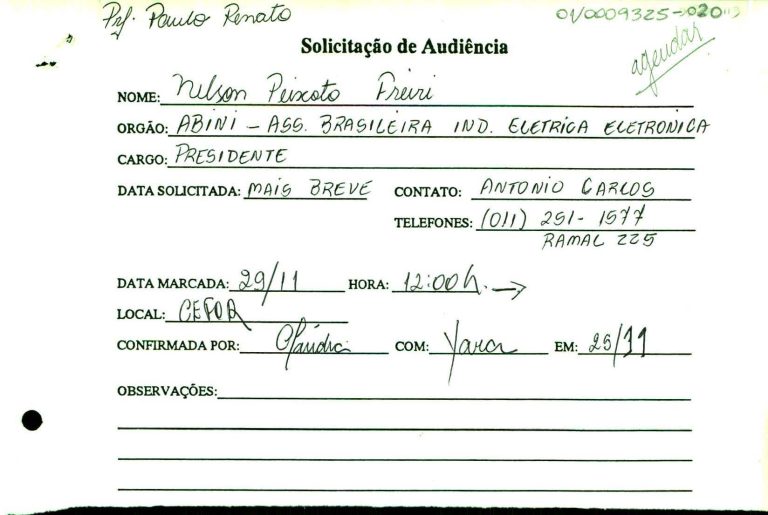 Prf. Paulo Renato
01/0009325-020
Solicitação de Audiência
agendar
NOME: Nilson Peixoto Freiri
ORGÃO: ABINI - ASS. BRASILEIRA IND. ELETRICA ELETRONICA
CARGO: PRESIDENTE
DATA SOLICITADA: MAIS BREVE CONTATO: ANTONIO CARLOS
TELEFONES: (011) 251-1577
RAMAL 225
DATA MARCADA: 29/11 HORA: 12:00h. →
LOCAL: CEFOR
CONFIRMADA POR: Cláudia COM: Yara EM: 25/11
OBSERVAÇÕES: